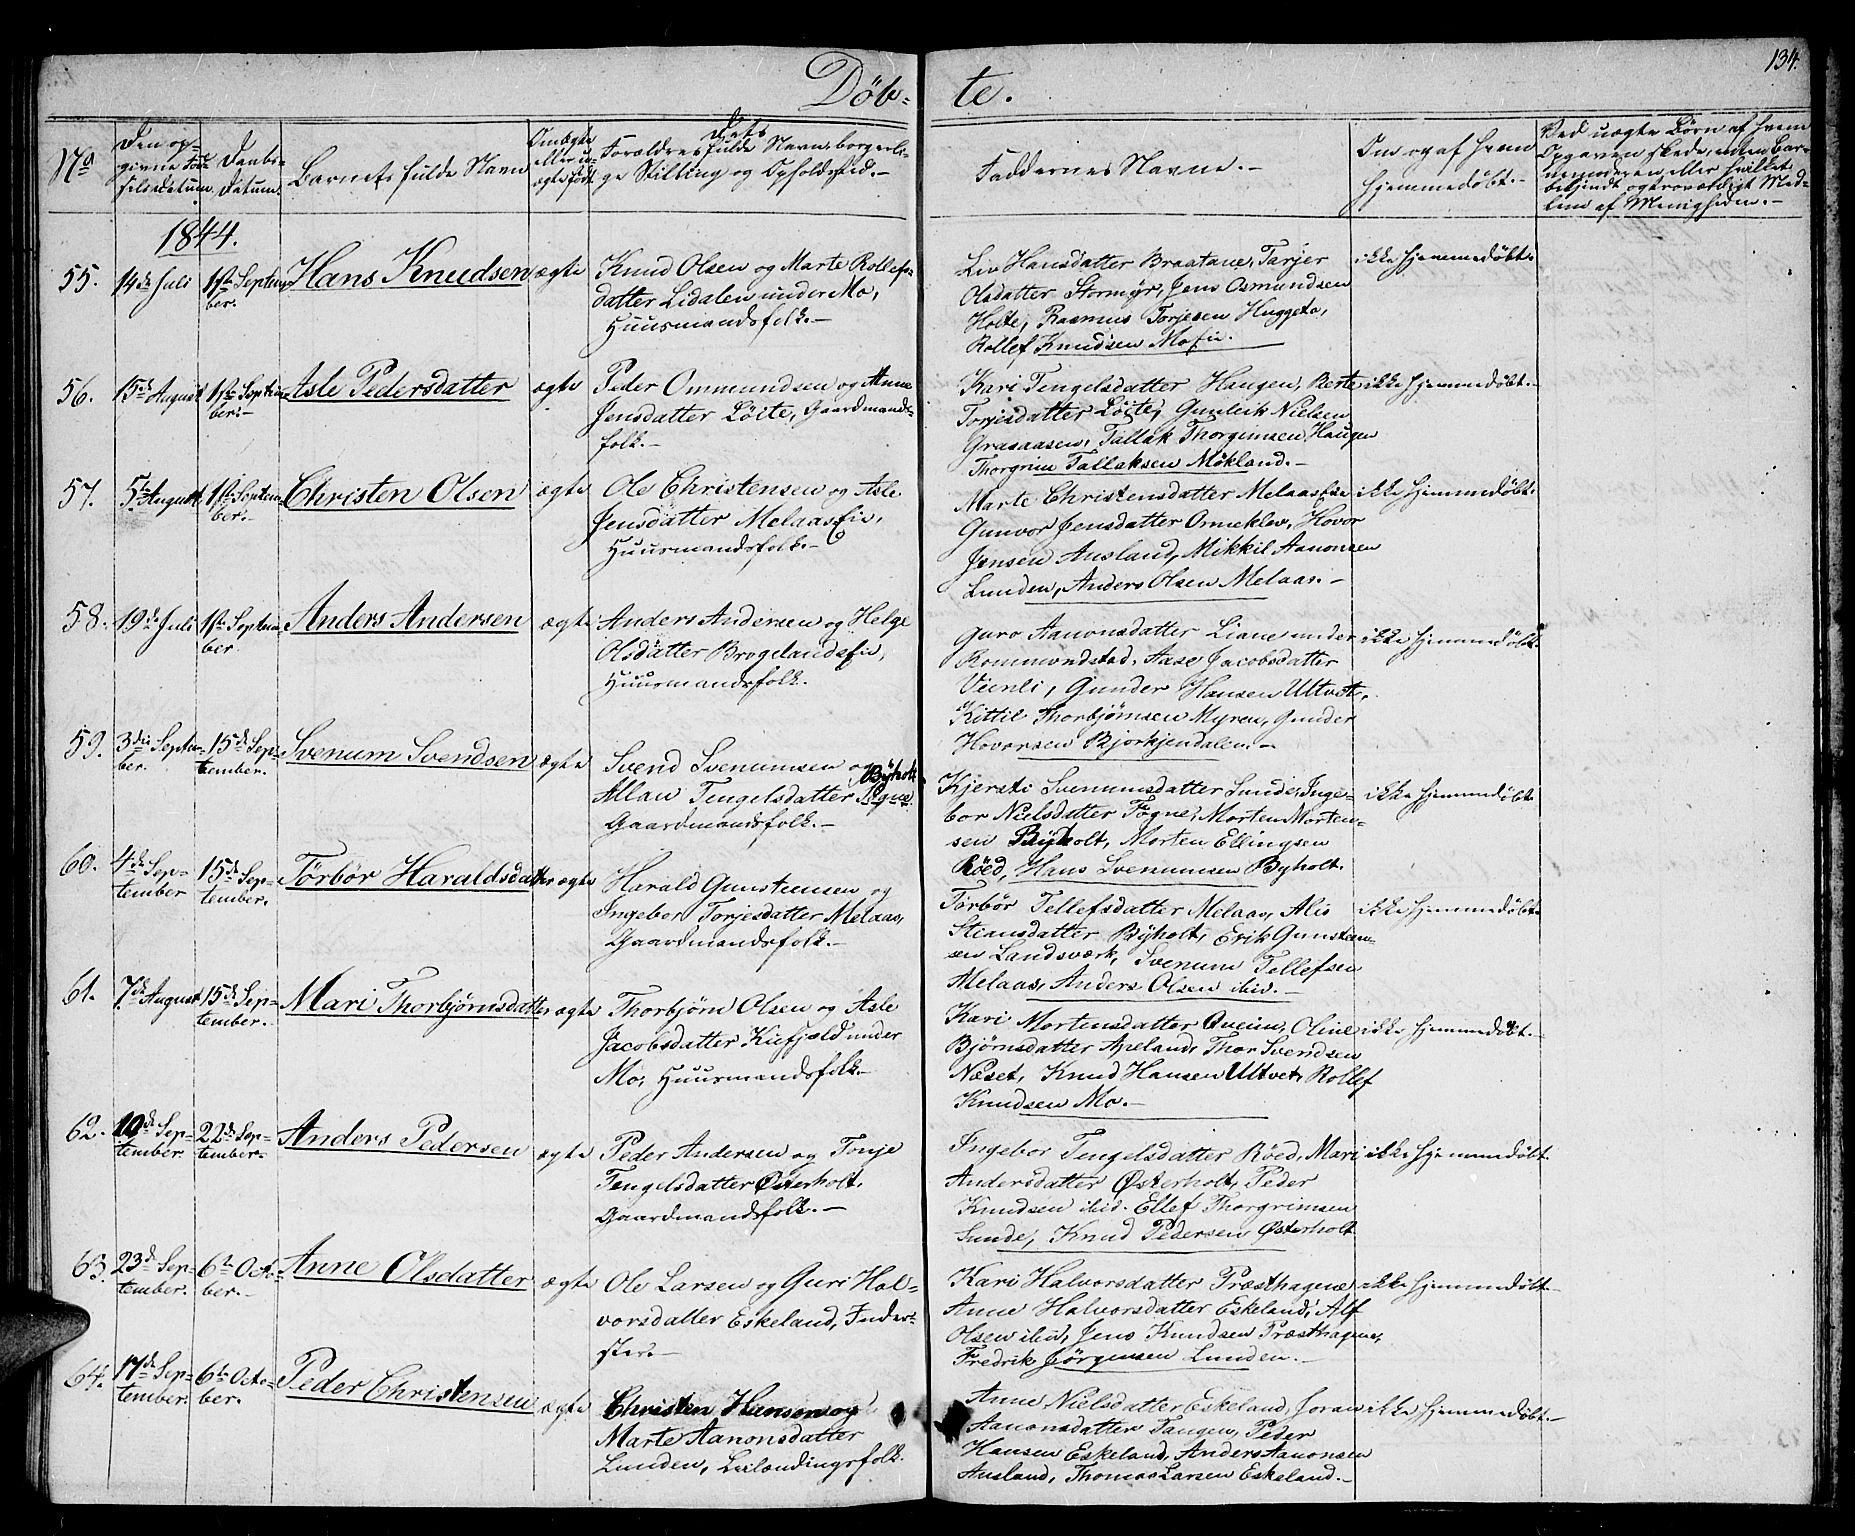 134.
Døb- te.
No
Den op-
givne Fød-
selsdatum
Daabs-
Datum.
Barnets fulde Navn
Om ægte
eller u-
ægte født
Dets
Forældres fulde Navn borgerli-
ge Stilling og Opholdsted.-
Faddernes Navne.-
Om og af hvem
hjemmedøbt.-
Ved uægte Børn af hvem
Opgaven skede, uden Bar-
nemoderen eller hvilket
bekjendt og troværdigt Med-
lem af Menigheden.-
1844.
55.
14de Juli
1ste Septem-
ber.
Hans Knudsen
ægte
Knud Olsen og Marte Rollefs-
datter Lidalen under Mo,
Huusmandsfolk.-
Liv Hansdatter Braatane, Tarjer
Olsdatter Stormyr, Jens Osmundsen
Holte, Rasmus Torjesen Huggeto,
Rollef Knudsen Mofie.
ikke hjemmedøbt.
56.
15de August
1ste Septem-
ber.-
Asle Pedersdatter
ægte
Peder Ommundsen og Anne
Jensdatter Løite, Gaardmands-
folk.-
Kari Tengelsdatter Haugen, Berte
Torjesdatter Løite, Gunleik Nielsen
Graaaasen, Tallak Thorgimsen Haugen
Thorgrim Tallaksen Møkland.-
ikke hjemmedøbt.-
57.
5te August
1ste Septem-
ber.-
Christen Olsen
ægte
Ole Christensen og Asle
Jensdatter Melaasfie,
Huusmandsfolk.-
Marte Christensdatter Melaasfie
Gunvor Jensdatter Ormeklev, Hovor
Jensen Ausland, Mikkil Aanonsen
Lunden, Anders Olsen Melaas.-
ikke hjemmedøbt.
58.
19de Juli
1ste Septem-
ber.
Anders Andersen
ægte
Anders Andersen og Helge
Olsdatter Brogelandsfie,
Huusmandsfolk.
Guro Aanonsdatter Liane under
Rommundstad, Aase Jacobsdatter
Vienli, Gunder Hansen Ultvet,
Kittil Thorbjørnsen Myren, Gunder
Hovorsen Bjorkjendalen.-
ikke hjemmedøbt.
59.
3die Septem-
ber.
15de Sep-
tember.
Svenum Svendsen
ægte
Svend Svenumsen og
Allau Tengelsdatter Byholt
Gaardmandsfolk.-
Kjersti Svenumsdatter Sunde, Inge-
bor Nielsdatter Fogne, Morten Morten-
sen Byholt, Morten Ellingsen
Røed, Hans Svenumsen Byholt.
ikke hjemmedøbt
60.
4de Sep-
tember
15de Sep-
tember.
Torbør Haraldsdatter
ægte
Harald Gunsteensen og
Ingebor Torjesdatter Melaas,
Gaardmandsfolk.-
Torbør Tellefsdatter Melaas, Alis
Steansdatter Byholt, Erik Gunsteen-
sen Landsværk, Svenum Tellefsen
Melaas, Anders Olsen ibid.-
ikke hjemmedøbt
61.
7de August
15de Sep-
tember.
Mari Thorbjørnsdatter
ægte
Thorbjørn Olsen og Asle
Jacobsdatter Kiefjeld under
Mo, Huusmandsfolk.-
Kari Mortensdatter Queim, Oline
Bjørnsdatter Apeland, Thor Svendsen
Næset, Knud Hansen Ultvet, Rollef
Knudsen Mo.-
ikke hjemmedøbt.-
62.
10de Sep-
tember.
22de Sep-
tember.
Anders Pedersen
ægte
Peder Andersen og Tonje
Tengelsdatter Østerholt,
Gaardmandsfolk.-
Ingebor Tengelsdatter Røed, Mari
Andersdatter Østerholt, Peder
Knudsen ibid. Ellef Thorgrimsen
Sunde, Knud Pedersen Østerholt
ikke hjemmedøbt.
63.
23de Sep-
tember.
6te Octo-
ber.-
Anne Olsdatter
ægte
Ole Larsen og Guri Hal-
vorsdatter Eskeland, Inder-
ster.-
Kari Halvorsdatter Præsthagne
Anne Halvorsdatter Eskeland, Alf
Olsen ibid, Jens Knudsen Præsthagne,
Fredrik Jørgensen Lunden.-
ikke hjemmedøbt.-
64.
17de Sep-
tember.
6te Octo-
ber.
Peder Christensen
ægte
Christen Hansen og
Marte Aanonsdatter
Lunden, Leilændingsfolk.
Anne Nielsdatter Eskeland, Joran
Aanonsdatter Tangen, Peder
Hansen Eskeland, Anders Aanonsen
Ausland, Thomas Larsen Eskeland.-
ikke hjemmedøbt.-